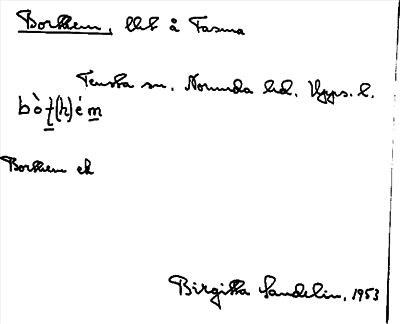 Borthem, lht å Fasma
Tensta sn. Norunda hd. Upps. l.
bòt(h)ém
Borthem ek
Birgitta Sandelin, 1953